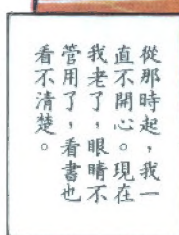 從那時起，我一
直不開心。現在
我老了，眼睛不
管用了，看書也
看不清楚。